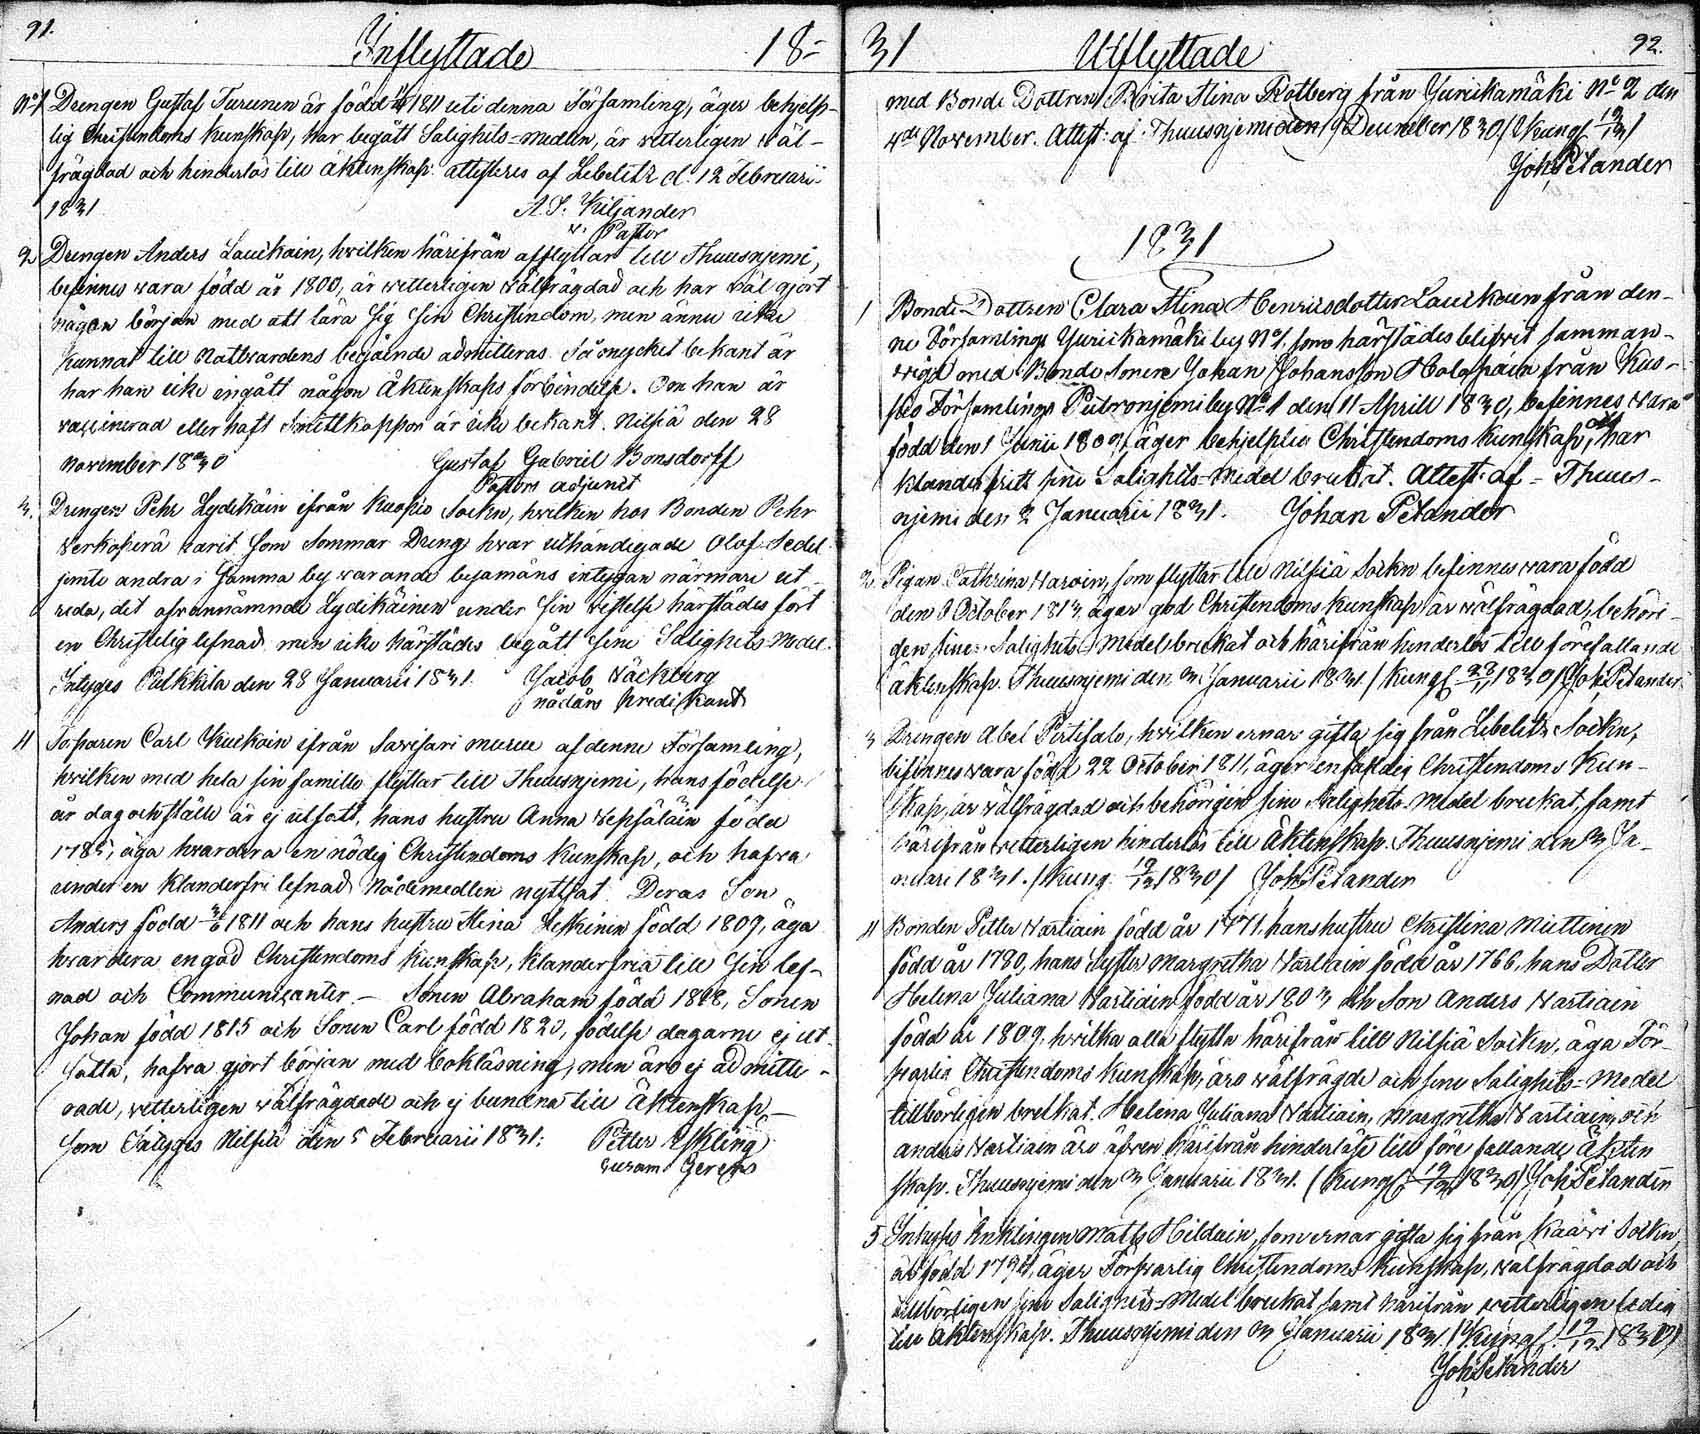 91.
Inflyttade 18-
No 1 Drengen Gustaf Turunen är född 1811 uti denna Församling, äger behjelp-
lig Christendoms kunskap, har begått Salighets-medlen, är witterligen wäl-
frägdad och hinderlös till äktenskap. attesteras af Libelitz d. 12 Februarii
1831. A. J. Kiljander
v. Pastor
2 Drengen Anders Lauikain, hwilken härifrån afflyttar till Thuusnjemi,
befinnes wara född år 1800, är witterligen wälfrägdad och har wäl gjort
någon början med att lära sig sin Christendom, men ännu icke
kunnat till Nattwardens begående admitteras. Så mycket bekant är
har han icke engått någon Äktenskaps förbindelse. Om han är
vaccinerad eller haft Smittkoppor är icke bekant. Nilsiä den 28
November 1830 Gustaf Gabriel Bonsdorff
Pastors adjunct
3. Drengen Pehr Lydikäin ifrån Kuopio Sockn, hwilken hos Bonden Pehr
werkoperä varit som Sommar Dreng, hwar uthändigade Olof Sedel
jemte andra i samma by warande byamäns intygan närmare ut-
reda, det ofvannämnde Lydikäinen under sin wistelse härstädes fört
en Christelig lefnad men icke härstädes begått sine Salighets-Medel.
Intyges Pulkkila den 28 Januarii 1831. Jacob Wäckberg
nådårs Predikant
4 Torparen Carl Kuikain ifrån Sawisari muru af denne Församling,
hwilken med hela sin famille flyttar till Thuusnjemi, hans födelse
år dag och ställe är ej utsatt, hans hustru Anna Wepsäläin född
1785, äga hwardera en nödig Christendoms kunskap, och hafva
under en klanderfri lefnad Nådemedlen nyttjat. Deras Son
Anders född 1811 och hans hustru Stina Heskinin född 1809, äga
hwardera en god Christendoms kunskap, klanderfria till sin lef-
nad och Communicanter. — Sonen Abraham född 1818, Sonen
Johan född 1815 och Sonen Carl född 1820, födelse dagarne ej ut-
satta, hafva gjort början med bokläsning, men äro ej admitte-
rade, witterligen wälfrägdade och ej bundna till Äktenskap, —
som Intyges Nilsiä den 5 Februarii 1831. Petter Eskling
curam Gerens
31 Utflyttade 92.
med Bonde Dottren Brita Stina Rotberg från Yurickamäki No 2 den
4de November. Attest: af Thuusnjemi den 19 December 1830 / Kungf 19/12 /
Joh: Petander
1831
1 Bonde Dottren Clara Stina Henricsdotter Lauikain från den-
ne Församlings Yurickamäki by No 1, som härstädes blifvit samman-
wigd med Bonde Sonen Johan Johansson Holopain från Kuo-
pio Församlings Putronjemi by No 1 den 11 Aprill 1830, befinnes wara
född den 1 Junii 1809, äger behjelplig Christendoms kunskap, och har
klanderfritt sine Salighets-Medel brukat. Attest: af - Thuus-
njemi den 2 Januarii 1831. Johan Petander
2 Pigan Cathrina Warwin, som flyttar till Nilsiä Sockn befinnes wara född
den 8 October 1813, äger god Christendoms kunskap, är wälfrägdad, behöri-
gen sine Salighets Medel brukat och härifrån hinderlös till förefallande
äktenskap. Thuusnjemi den 3 Januarii 1831 / Kungf 28/11 1830 / Joh: Petander
3 Drengen Abel Pirtisalo, hwilken ernar gifta sig från Libelitz Sockn,
befinnes wara född 22 October 1811, äger enfaldig Christendoms Kun-
skap, är wälfrägdad och behörigen sine Salighets-Medel brukat, samt
härifrån witterligen hinderlös till Äktenskap. Thuusnjemi den 3 Ja-
nuari 1831. / Kung. 19/12 1830 / Joh: Petander
4 Bonden Petter Wartiain född år 1771, hans hustru Christina Miettinen
född år 1780, hans syster Margretha Wartiain född år 1766, hans Dotter
Helena Juliana Wartiain född år 1803 och Son Anders Wartiain
född år 1809, hwilka alla flytta härifrån till Nilsiä Sockn, äga För-
swarlig Christendoms kunskap, äro wälfrägde och sine Salighets-Medel
tillbörligen brukat. Helena Juliana Wartiain, Margretha Wartiain och
Anders Wartiain äro äfven härifrån hinderlöse till före fallande Äkten
skap. Thuusnjemi den 3 Januarii 1831. (Kungf 19/12 1830) Joh: Petander
5 Inhyses Enklingen Matts Hilduin, som ernar gifta sig från Kaawi Sockn,
är född 1794, äger Förswarlig Christendoms Kunskap, wälfrägdad och
tillbörligen sine Salighets-Medel brukat samt härifrån witterligen ledig
till äktenskap. Thuusnjemi den 3 Januarii 1831. (Kungf. 19/12 1830)
Joh: Petander